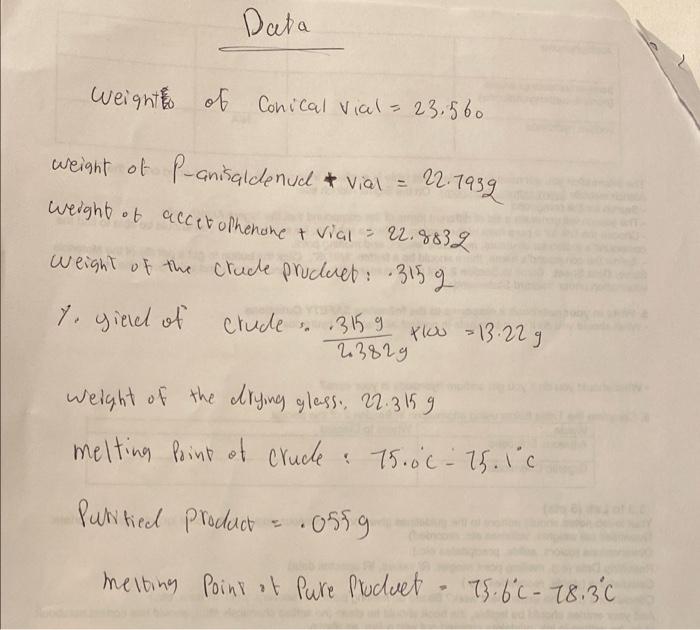 Data
weight of Conical vial = 23.560
weight of P-anisaldehyd + vial = 22.793g
weight of accetophenone + vial = 22.883g
weight of the crude product: .315 g
%. yield of crude: .315 g / 2.382g × 100 = 13.22 g
weight of the drying glass: 22.315 g
melting Point of crude: 75.0°C - 75.1°C
Purified product = .055g
melting Point of Pure Product = 75.6°C - 78.3°C